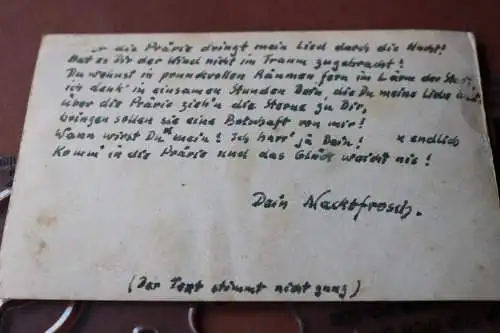 er die Prärie dringt mein Lied durch die Nacht!
Hat es Dir der Wind nicht im Traum zugebracht?
Du wohnst in prunkvollen Räumen fern im Lärm der Sta
ich denk' in einsamen Stunden Dein, die Du meine Liebe
über die Prärie zieh'n die Sterne zu Dir,
bringen sollen sie eine Botschaft von mir!
Wann wirst Du x mein! Ich harr' ja Dein! x endlich
Komm' in die Prärie und das Glück weicht nie!
Dein Nacktfrosch.
(Der Text stimmt nicht ganz)